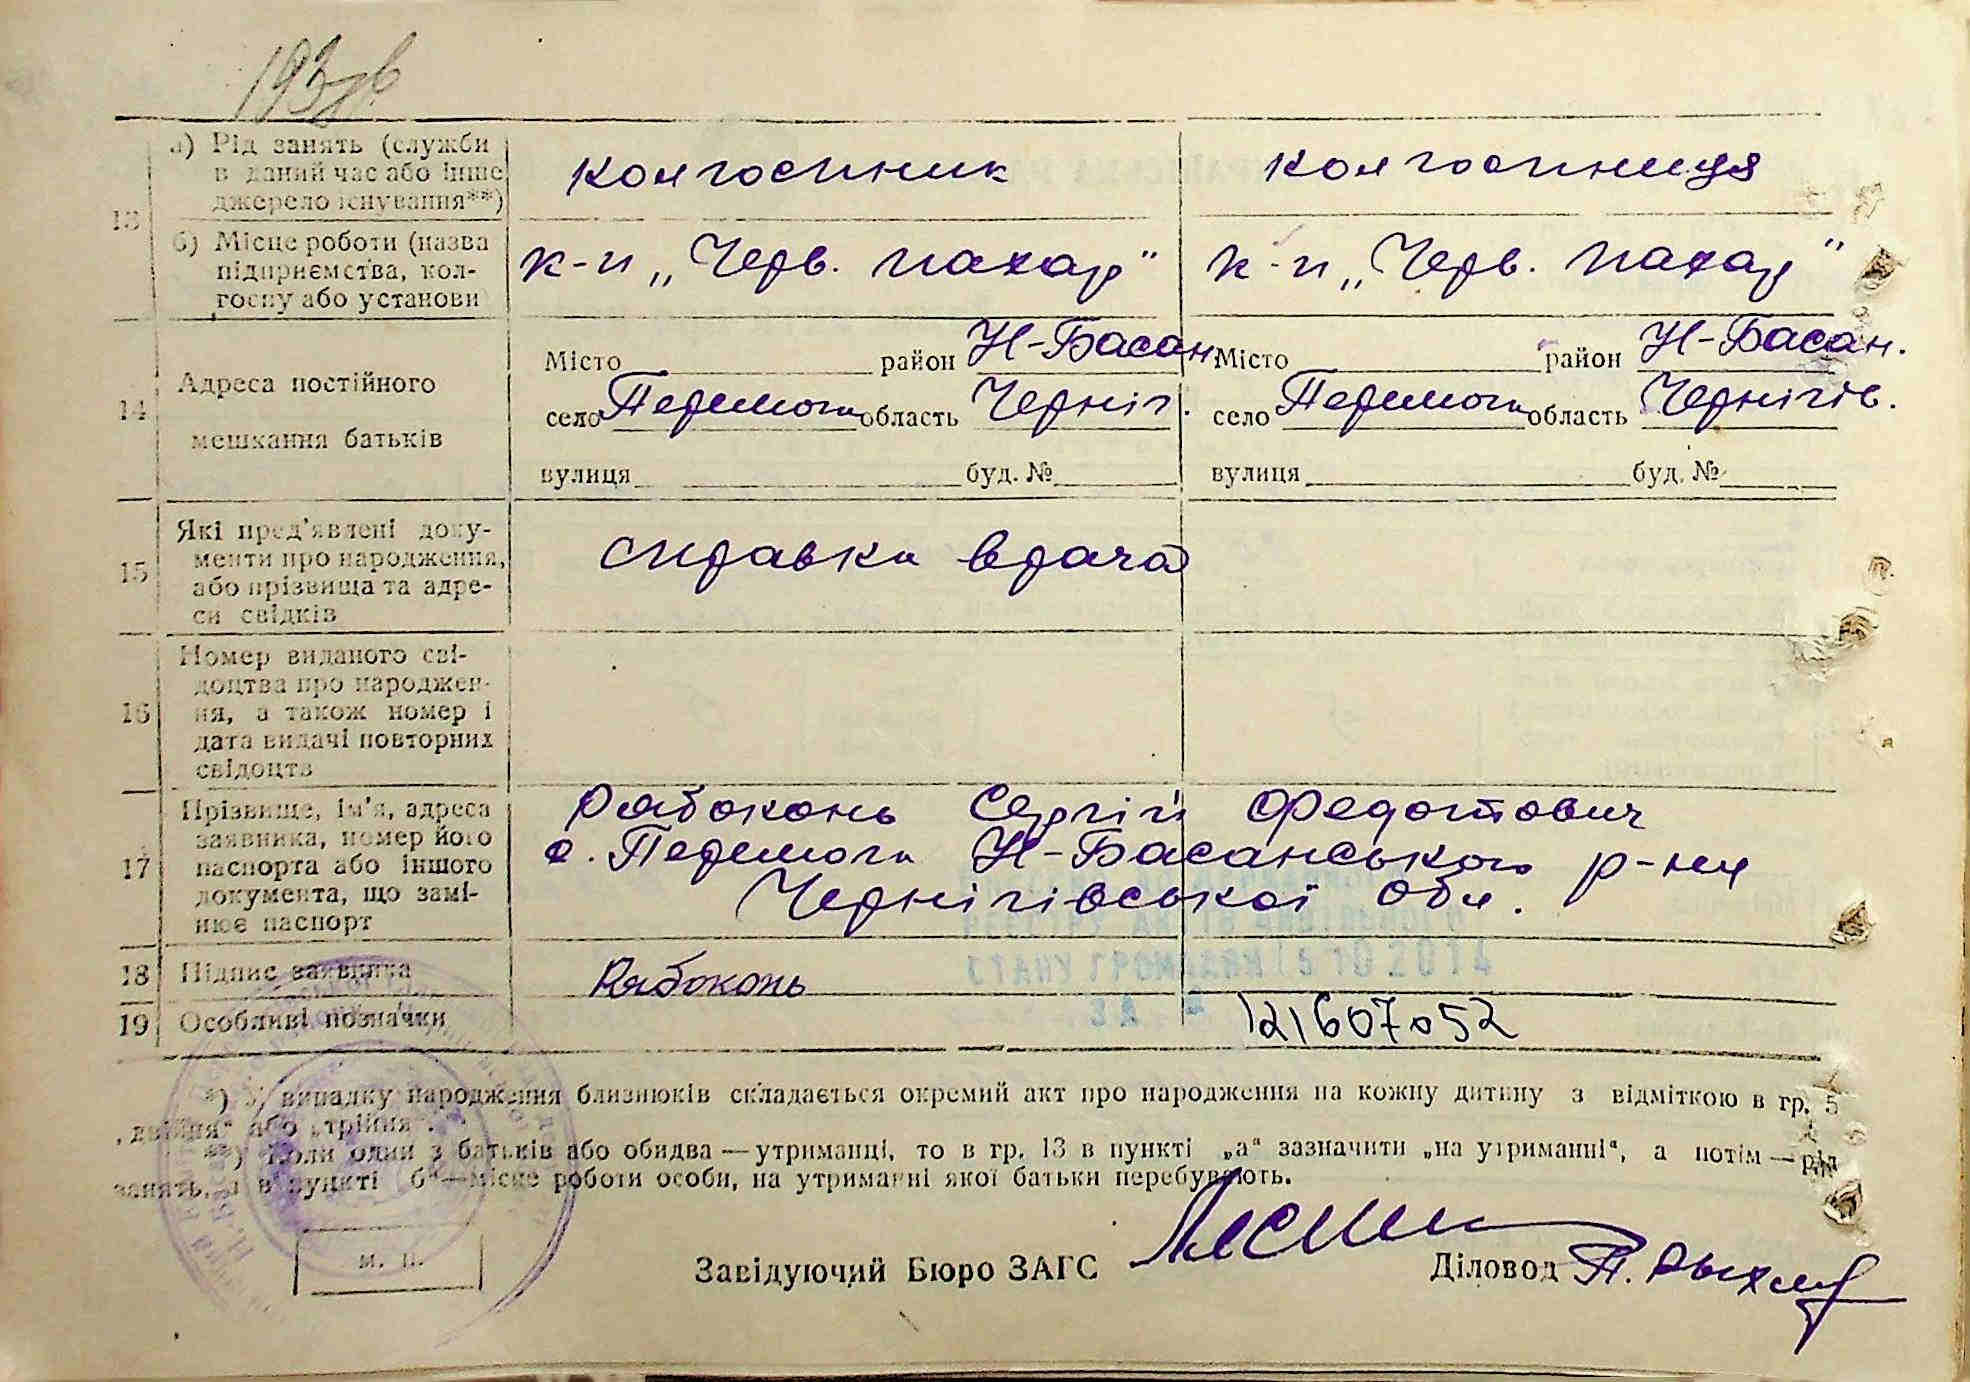 193
а) Рід занять (служби
в даний час або інше
джерело існування**)
колгоспник
колгоспниця
13
б) Місце роботи (назва
підприємства, кол-
госпу або установи
к-п „Черв. пахар"
к-п „Черв. пахар"
14
Адреса постійного
мешкання батьків
Місто район Н-Басан.
село Перемога область Черніг.
вулиця буд. №
Місто район Н-Басан.
село Перемога область Чернігів.
вулиця буд. №
15
Які пред'явлені доку-
менти про народження,
або прізвища та адре-
си свідків
справка врача
16
Номер виданого сві-
доцтва про народжен-
ня, а також номер і
дата видачі повторних
свідоцтв
17
Прізвище, ім'я, адреса
заявника, номер його
паспорта або іншого
документа, що замі-
нює паспорт
Рябоконь Сергій Федотович
с. Перемога Н-Басанського р-ну
Чернігівської обл.
18 Підпис заявника
Рябоконь
СТАНУ ГРОМАДЯН
ЗА №
19 Особливі позначки
121607052
*) У випадку народження близнюків складається окремий акт про народження на кожну дитину з відміткою в гр. 5
„двійня" або „трійня".
**) Коли один з батьків або обидва — утриманці, то в гр. 13 в пункті „а" зазначити „на утриманні", а потім — рід
занять, а в пункті „б" — місце роботи особи, на утриманні якої батьки перебувають.
м. п.
Завідуючий Бюро ЗАГС
Діловод П.